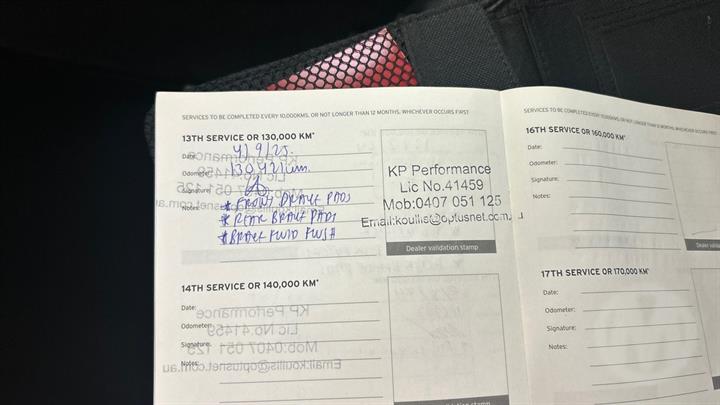 SERVICES TO BE COMPLETED EVERY 10,000KMS, OR NOT LONGER THAN 12 MONTHS, WHICHEVER OCCURS FIRST
13TH SERVICE OR 130,000 KM*
Date: 4/9/25.
Odometer: 130421km.
Signature:
Notes: * FRONT BRAKE PADS
* REAR BRAKE PADS
* BRAKE FLUID FLUSH
KP Performance
Lic No.41459
Mob:0407 051 125
Email:koullis@optusnet.com.au
Dealer validation stamp
14TH SERVICE OR 140,000 KM*
Date:
Odometer:
Signature:
Notes:
SERVICES TO BE COMPLETED EVERY 10,000KMS, OR NOT LONGER THAN 12 MONTHS, WHICHEVER OCCURS FIRST
16TH SERVICE OR 160,000 KM*
Date:
Odometer:
Signature:
Notes:
Dealer
17TH SERVICE OR 170,000 KM*
Date:
Odometer:
Signature:
Notes: